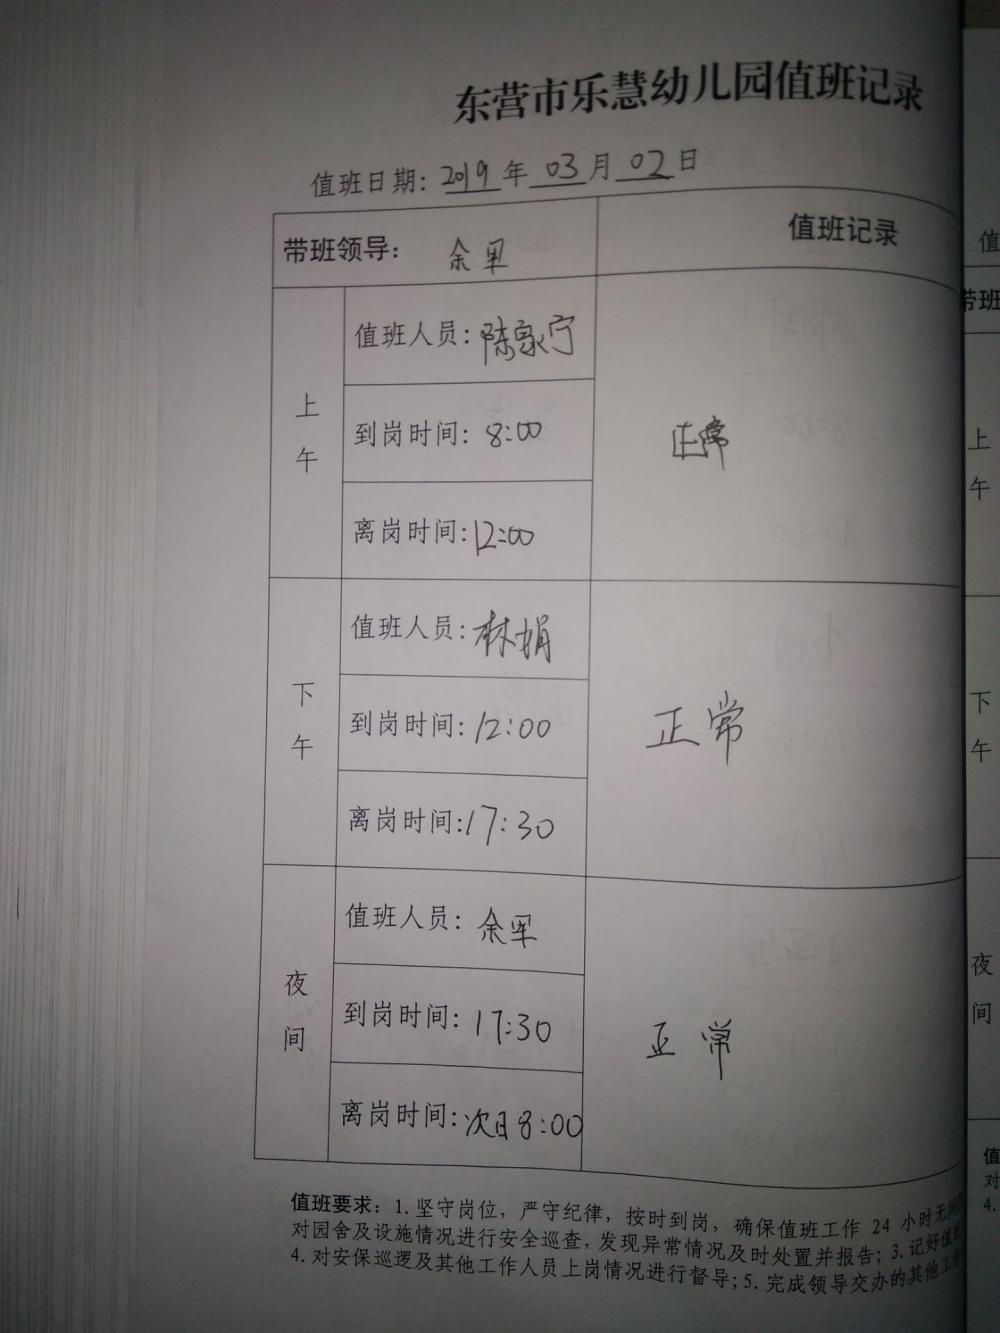 东营市乐慧幼儿园值班记录
值班日期：2019年03月02日
带班领导：余军
值班记录
上午
值班人员：陈家宁
到岗时间：8:00
离岗时间：12:00
正常
下午
值班人员：林娟
到岗时间：12:00
离岗时间：17:30
正常
夜间
值班人员：余军
到岗时间：17:30
离岗时间：次日8:00
正常
值班要求：1.坚守岗位，严守纪律，按时到岗，确保值班工作 24 小时无间
对园舍及设施情况进行安全巡查，发现异常情况及时处置并报告；3.记好值班
4.对安保巡逻及其他工作人员上岗情况进行督导；5.完成领导交办的其他工作
值
带班
上午
下午
夜间
值
对
4.